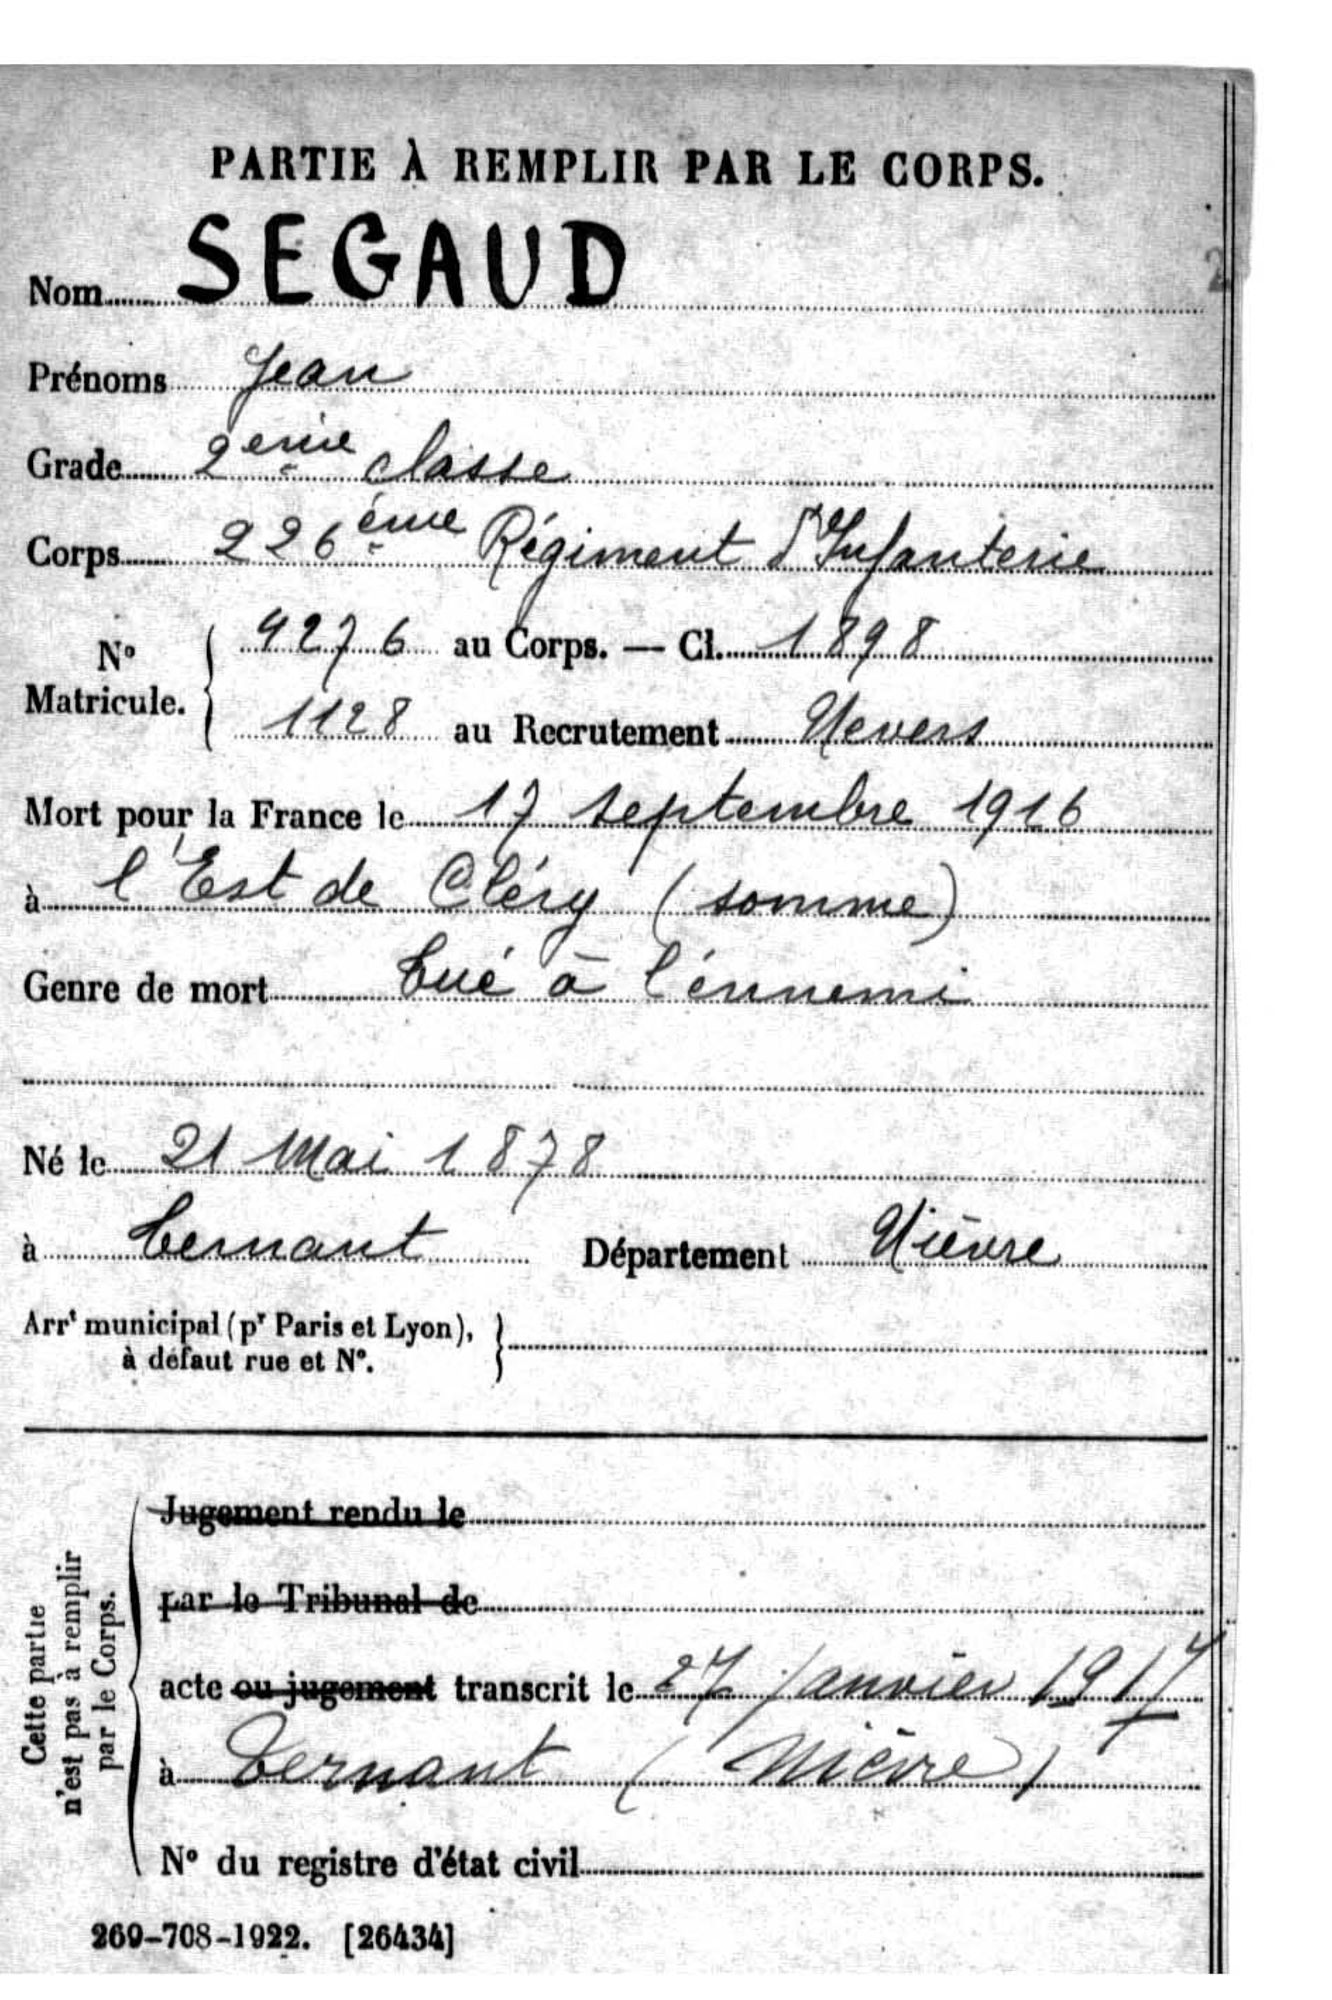 PARTIE À REMPLIR PAR LE CORPS.
Nom SEGAUD
Prénoms Jean
Grade 2eme classe
Corps 226ème Régiment d'Infanterie
N° Matricule. { 4276 au Corps. — Cl. 1898
1128 au Recrutement Nevers
Mort pour la France le 17 septembre 1916
à l'Est de Cléry (somme)
Genre de mort tué à l'énnemi
Né le 21 Mai 1878
à Ternant Département Nièvre
Arrt municipal (pr Paris et Lyon), }
à défaut rue et N°.
Cette partie
n'est pas à remplir
par le Corps.
Jugement rendu le
par le Tribunal de
acte ou jugement transcrit le 27 Janvier 1917
à Ternant (Nièvre)
N° du registre d'état civil
269-708-1922. [26434]